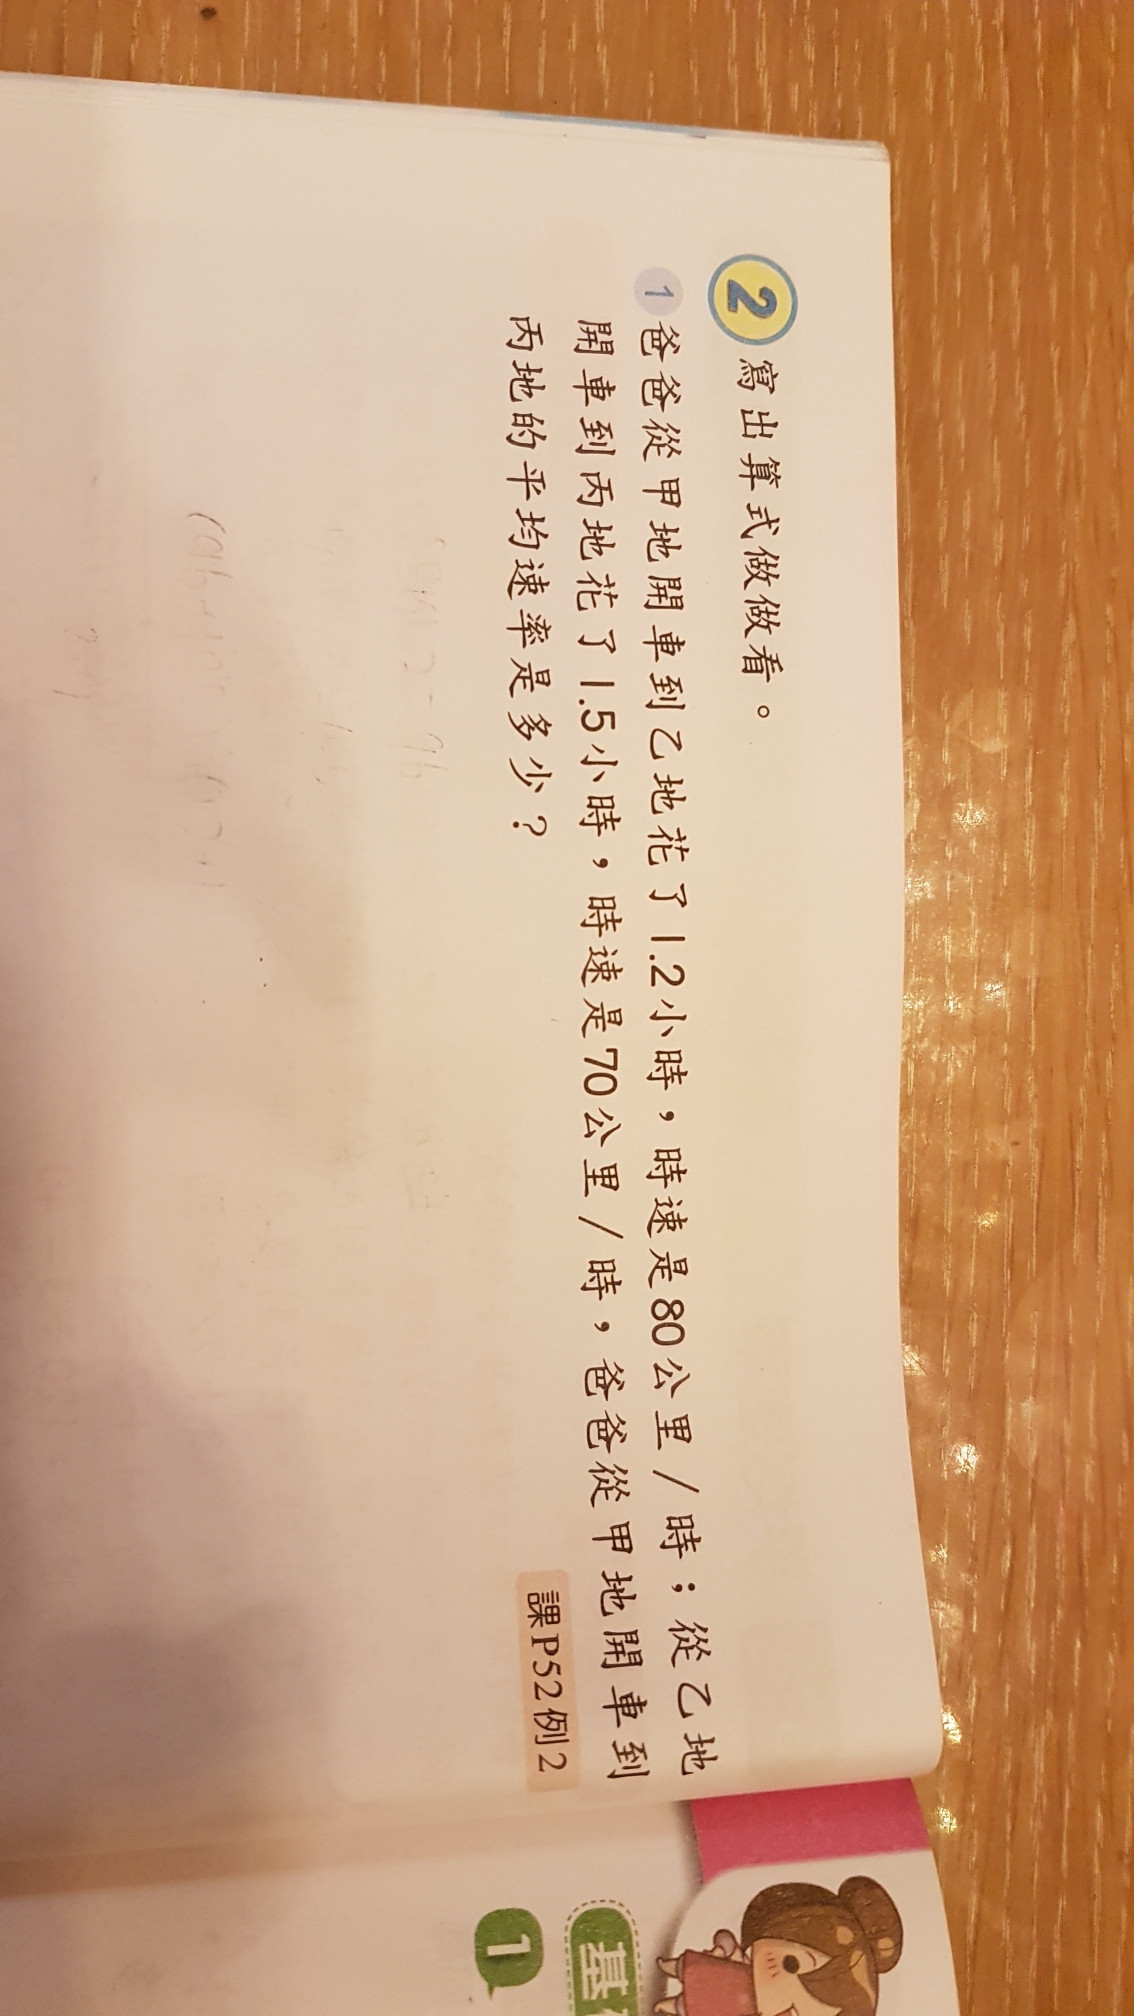 2 寫出算式做做看。
1 爸爸從甲地開車到乙地花了1.2小時,時速是80公里/時;從乙地
開車到丙地花了1.5小時,時速是70公里/時,爸爸從甲地開車到
丙地的平均速率是多少?
課P52例2
基
1